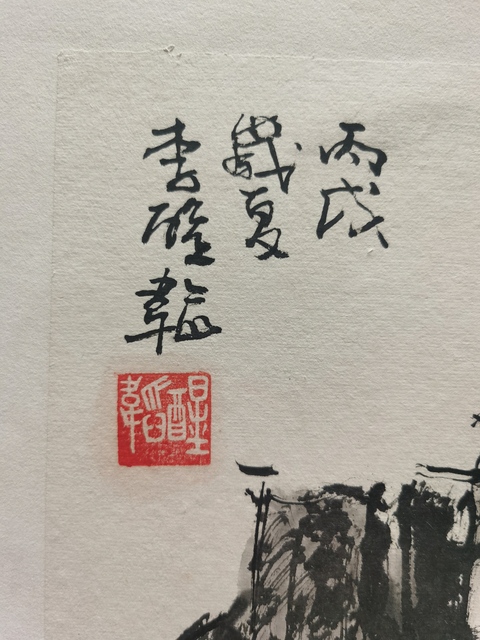 丙戌
歲夏
李醒韜
醒韜